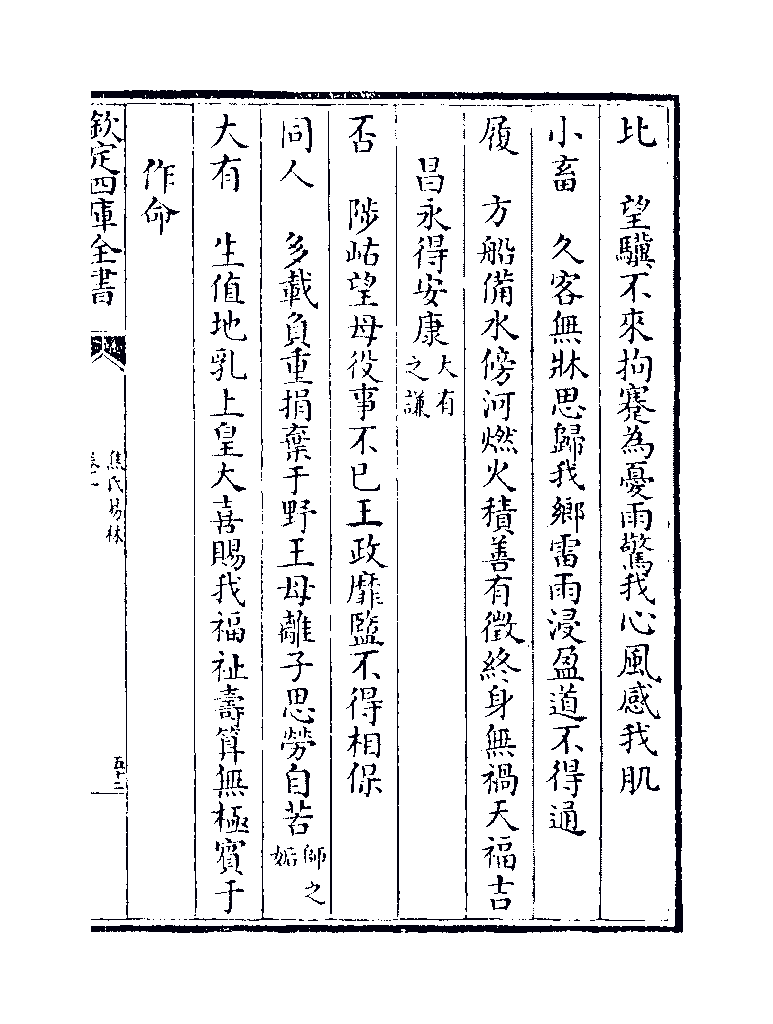 比　望驥不來拘蹇為憂雨驚我心風感我肌
小畜　久客無牀思歸我鄉雷雨浸盈道不得通
履　方船備水傍河燃火積善有徵終身無禍天福吉
昌永得安康大有之謙
否　陟岵望母役事不已王政靡盬不得相保
同人　多載負重捐棄于野王母離子思勞自苦師之姤
大有　生值地乳上皇大喜賜我福祉壽算無極賓于
作命
欽定四庫全書
焦氏易林
五十二